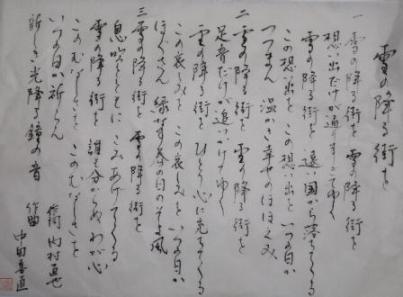 雪の降る街を
一 雪の降る街を 雪の降る街を
想い出だけが通りすぎてゆく
雪の降る街を 遠い国から落ちてくる
この想い出を この想い出を いつの日か
つつまん 温かき幸せのほほえみ
二 雪の降る街を 雪の降る街を
足音だけが追いかけてゆく
雪の降る街を ひとり心に満ちてくる
この哀しみを この哀しみを いつの日か
ほぐさん 緑なす春の日のそよ風
三 雪の降る街を 雪の降る街を
息吹とともにこみあげてくる
雪の降る街を 誰も分らぬわが心
このむなしさを このむなしさを
いつの日か祈らん
新しき光降る鐘の音
作詞 内村直也
作曲 中田喜直